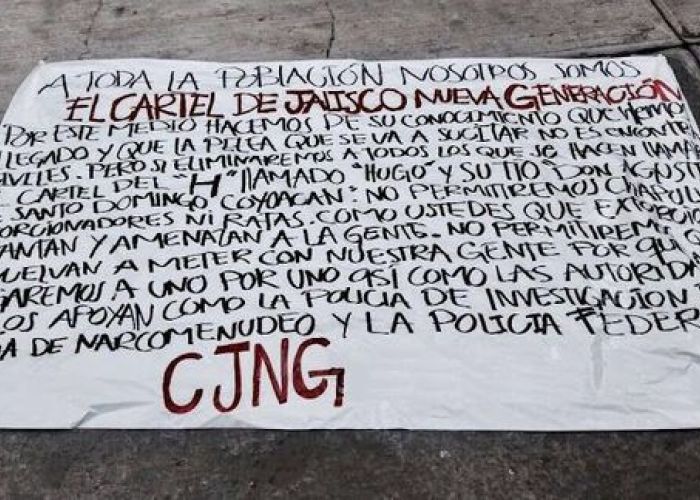 A TODA LA POBLACIÓN NOSOTROS SOMOS
EL CARTEL DE JALISCO NUEVA GENERACIÓN
POR ESTE MEDIO HACEMOS DE SU CONOCIMIENTO QUE HEMOS
LLEGADO Y QUE LA PELEA QUE SE VA A SUCITAR NO ES ENCONTRA
CIVILES. PERO SI ELIMINAREMOS A TODOS LOS QUE SE HACEN LLAMAR
CARTEL DEL "H" LLAMADO "HUGO" Y SU TIO "DON AGUSTI
SANTO DOMINGO, COYOACAN: NO PERMITIREMOS CHAPULI
ORCIONADORES NI RATAS. COMO USTEDES QUE EXTORCI
ANTAN Y AMENAZAN A LA GENTE. NO PERMITIREMOS
UELVAN A METER CON NUESTRA GENTE POR QUE
GAREMOS A UNO POR UNO ASÍ COMO LAS AUTORIDA
LOS APOYAN COMO LA POLICIA DE INVESTIGACION
DE NARCOMENUDEO Y LA POLICIA FEDER
CJNG